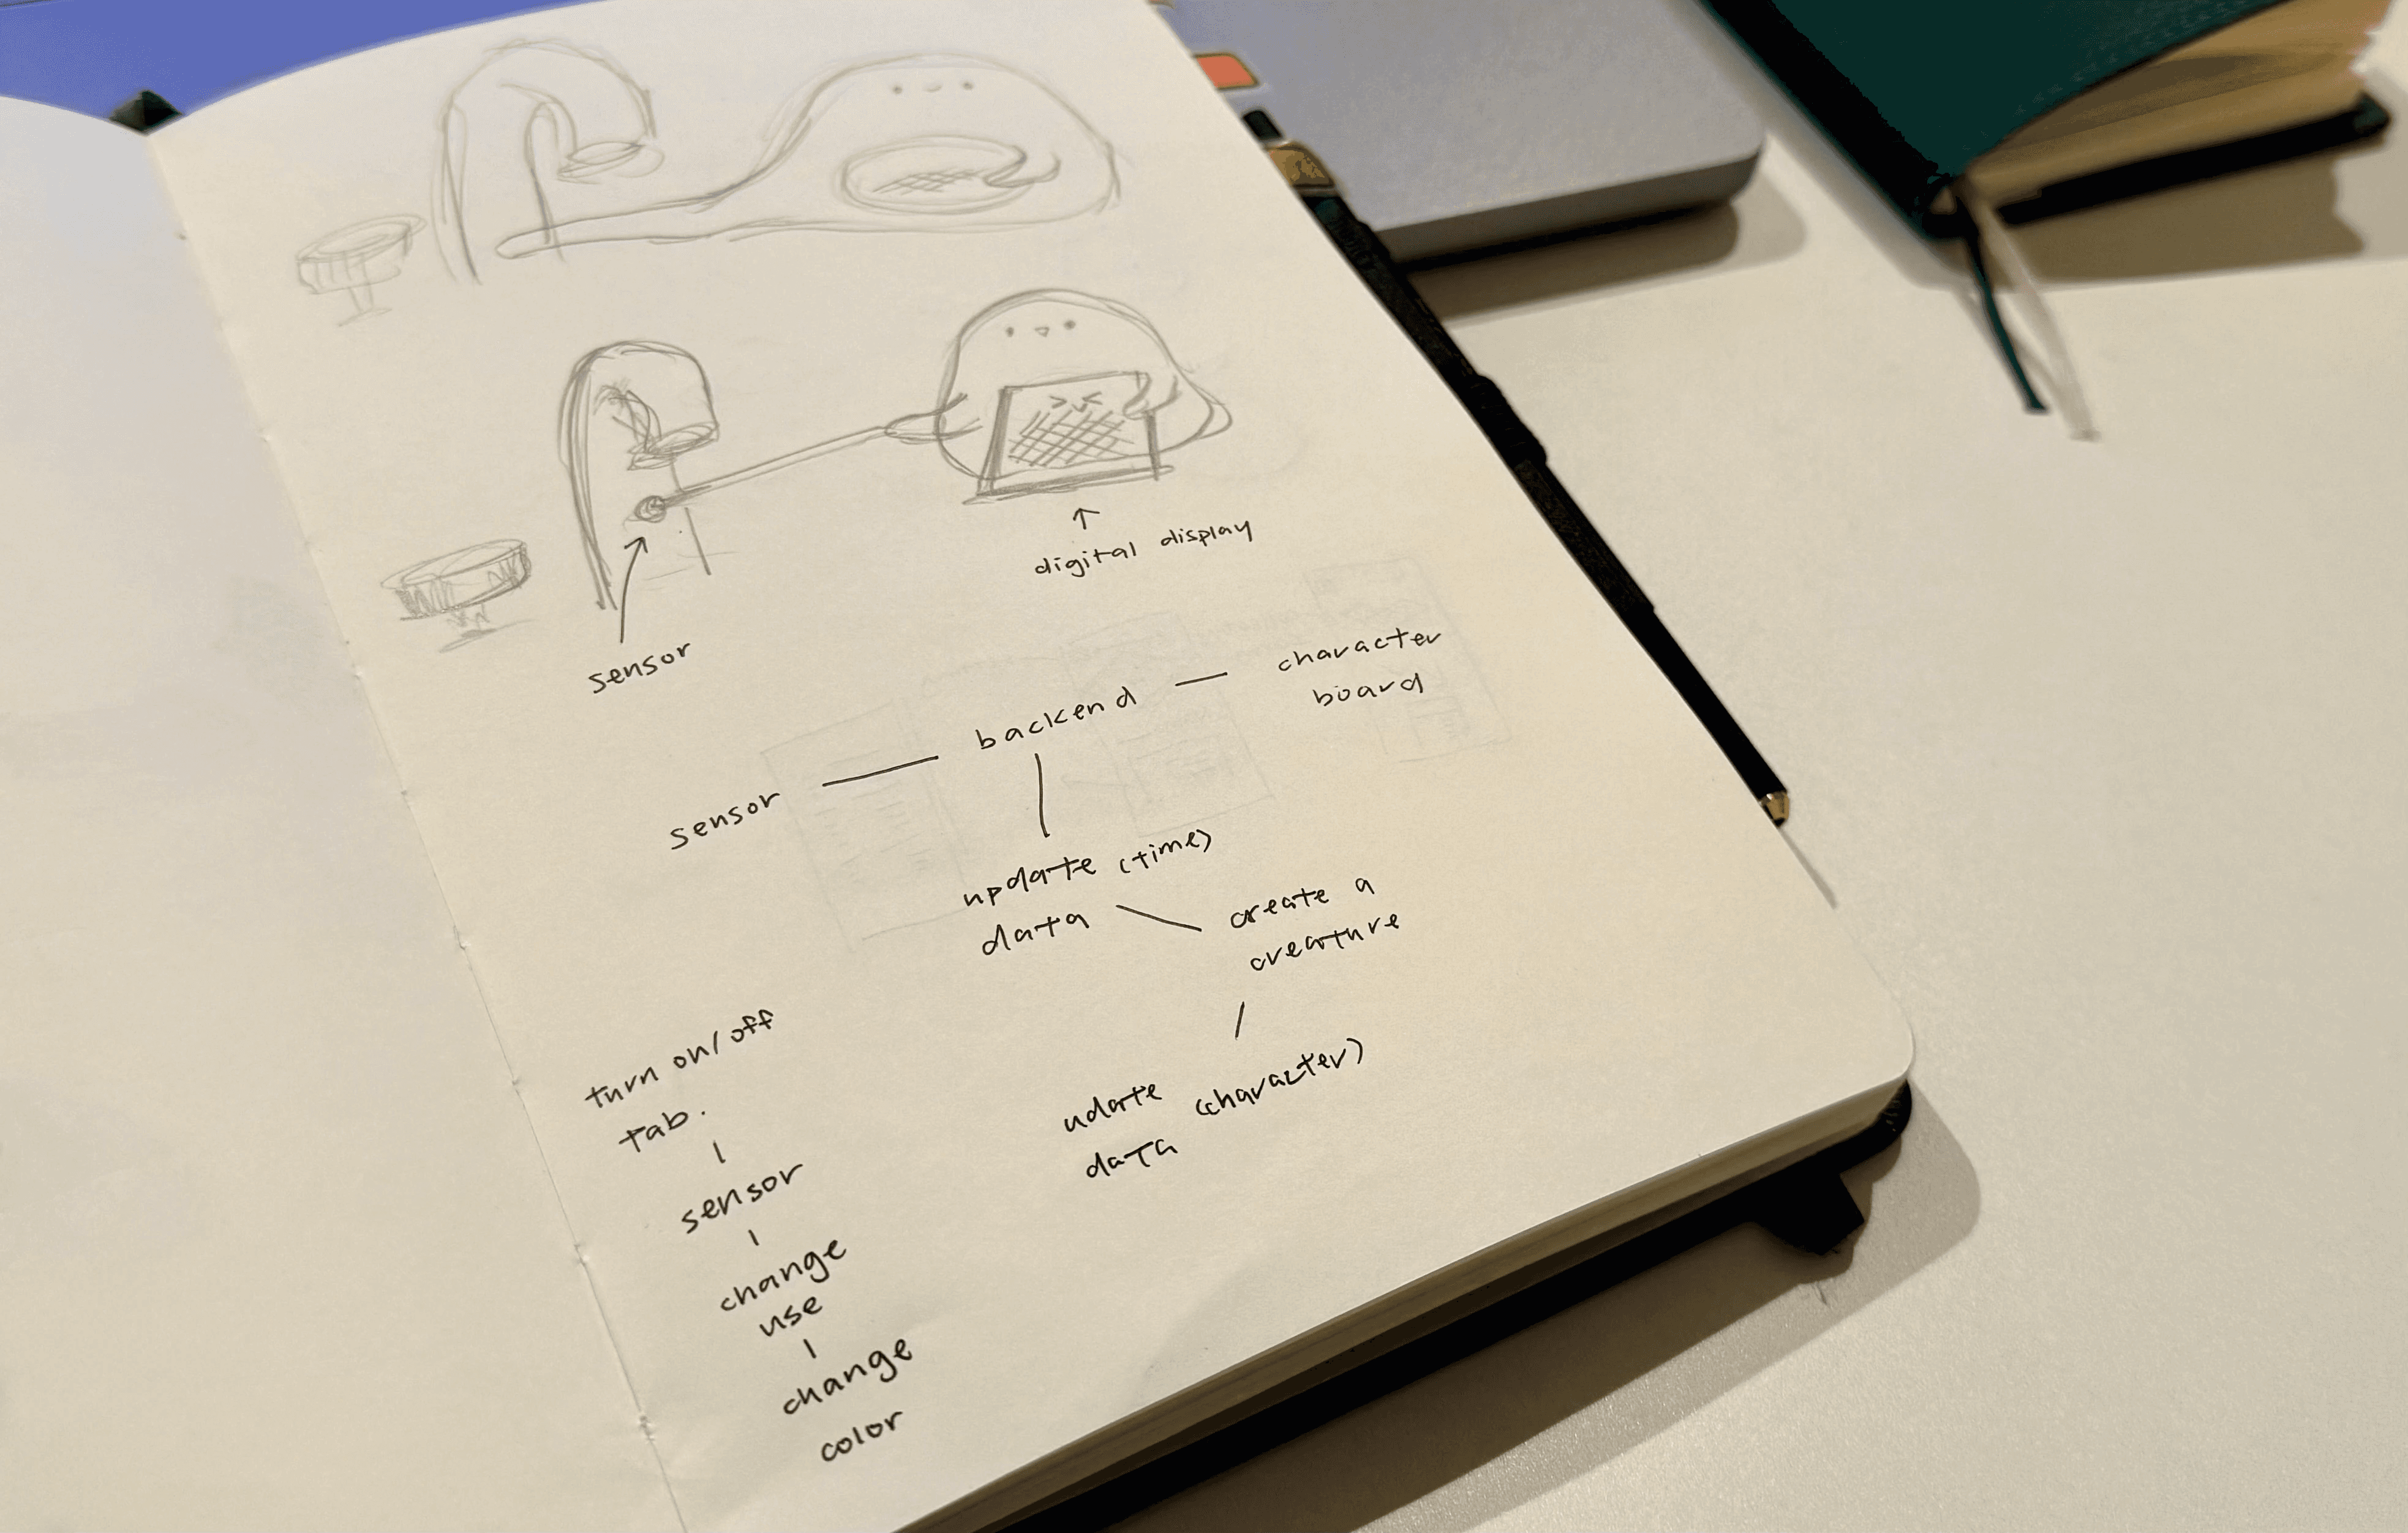 digital display
sensor
character
board
backend
sensor
update (time)
data
create a
creature
udate
(character)
data
turn on/off
tab.
sensor
change
use
change
color